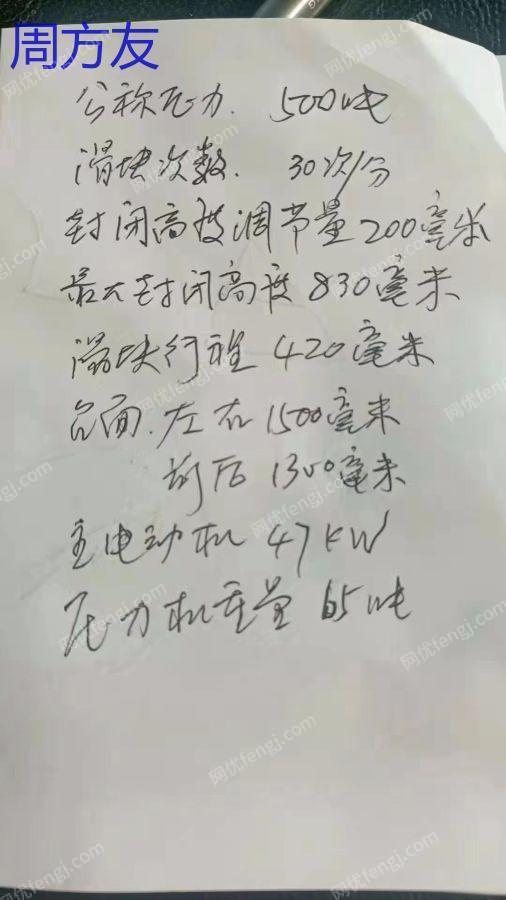 周方友
公称压力. 500吨
滑块次数. 30次/分
封闭高度调节量200毫米
最大封闭高度830毫米
滑块行程 420毫米
台面.左右1500毫米
前后 1300毫米
主电动机 47KW
压力机重量 65吨
网优fengj.com